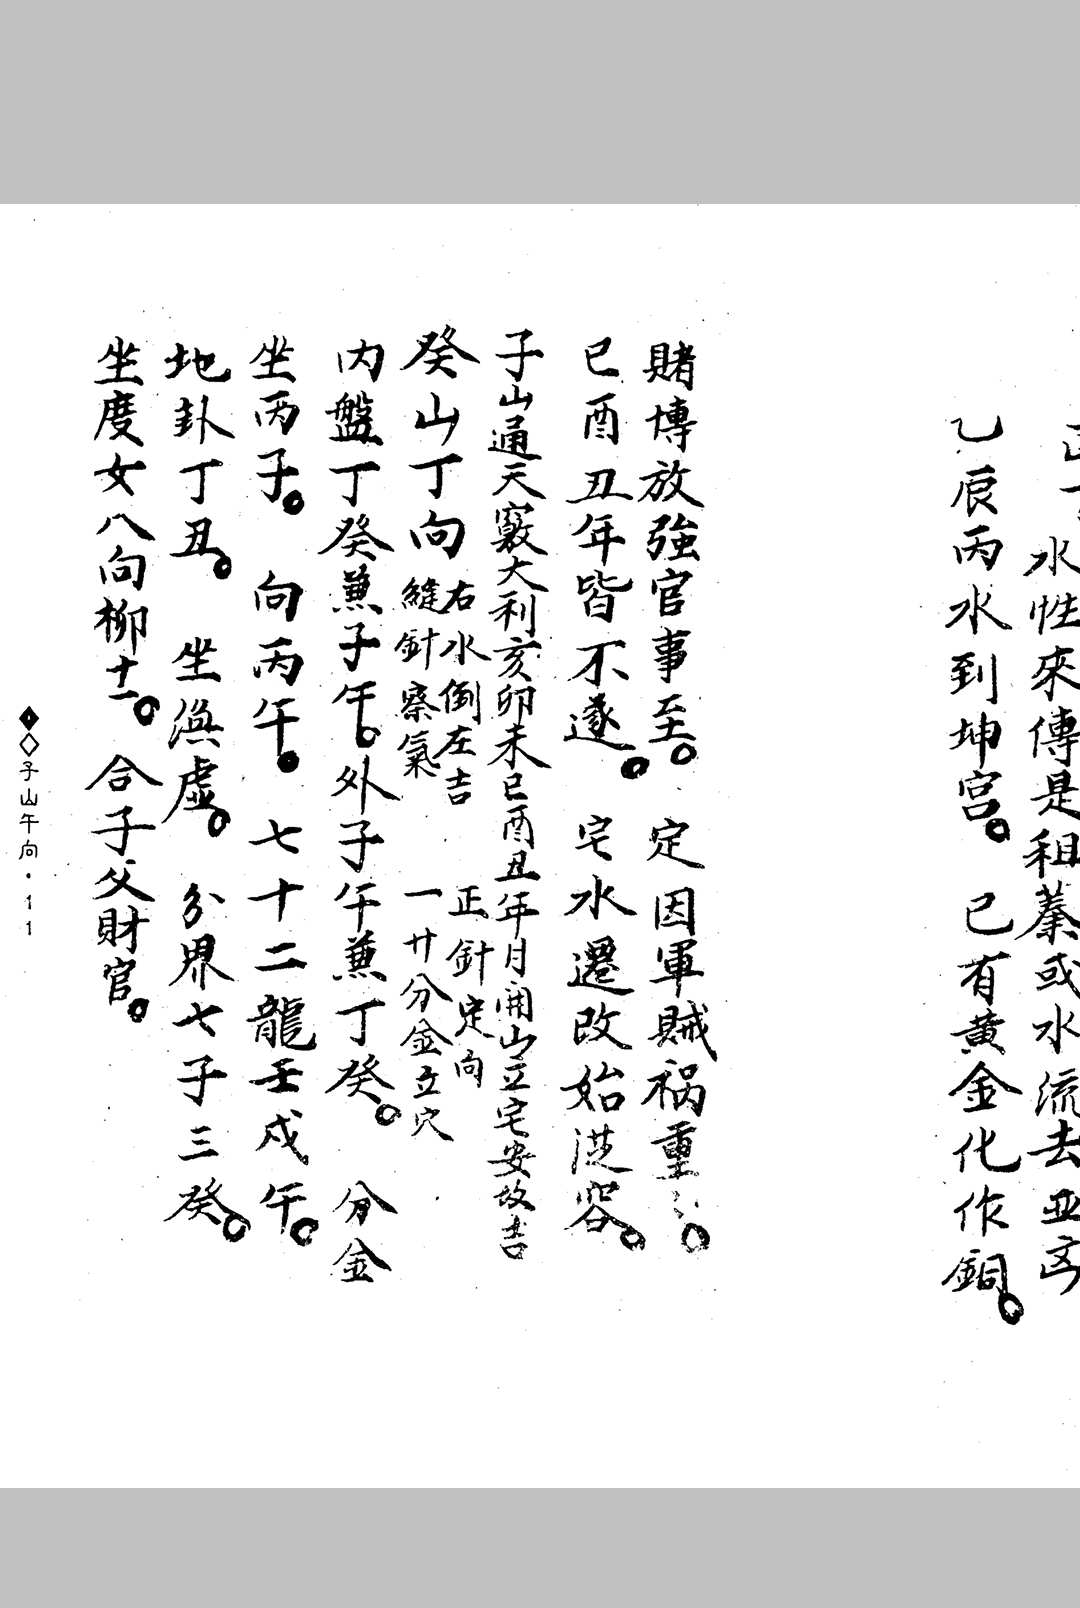 水性來傳是祖蓁或水流去亚
乙辰丙水到坤宫。巳有黄金化作銅。
賭博放強官事至。定因軍賊禍重
巳酉丑年皆不遂。宅水遷改始
子山通天竅大利亥卯未巳酉丑年月開山立宅安坟吉
癸山丁向
右水倒左吉
縫針察氣
正針定向
一廿分金立穴
内盤丁癸兼子午。外子午兼丁癸。分金
坐丙子。向丙午。七十二龍壬戍午。
地卦丁丑。坐渙虚。分界七子三癸。
坐度女八向柳十一。合子父財官。
子山午向·11